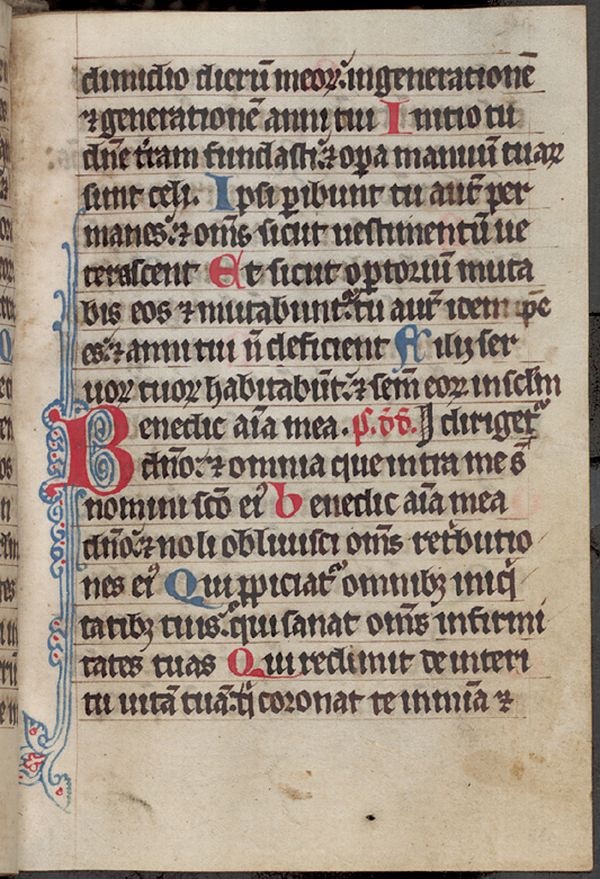 dimidio dierū meoꝝ: in generationē
⁊ generationē anni tui Initio tu
dn̄e t̄ram fundasti: ⁊ oꝑa manuū tuaꝝ
sunt celi. Ipsi ꝑibunt tu aut̄ per
manes: ⁊ om̄s sicut uestimentū ue
terascent Et sicut oꝑtoriū muta
bis eos ⁊ mutabunt᷑: tu aut̄ idem ip̄e
es: ⁊ anni tui n̄ deficient Filij ser
uoꝝ tuoꝝ habitabūt: ⁊ sem̄ eoꝝ in sc̄lm
Benedic aīa mea. p̄. dd̄. diriget᷑
dn̄o: ⁊ omnia que intra me s̄
nomini sc̄o eiꝰ benedic aīa mea
dn̄o: ⁊ noli obliuisci om̄s ret̓butio
nes eiꝰ Qui ꝓpiciat᷑ omnibꝫ iniq̇
tatibꝫ tuis: qui sanat om̄s infirmi
tates tuas Qui redimit de interi
tu uitā tuā: q̇ coronat te in mīa ⁊